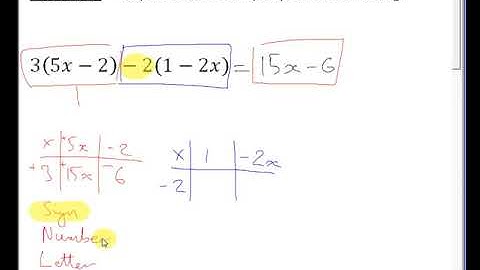 3(5x − 2) − 2(1 − 2x) = 15x − 6
x +5x -2
+3 +15x -6
x 1 -2x
-2
Sign
Number
Letter